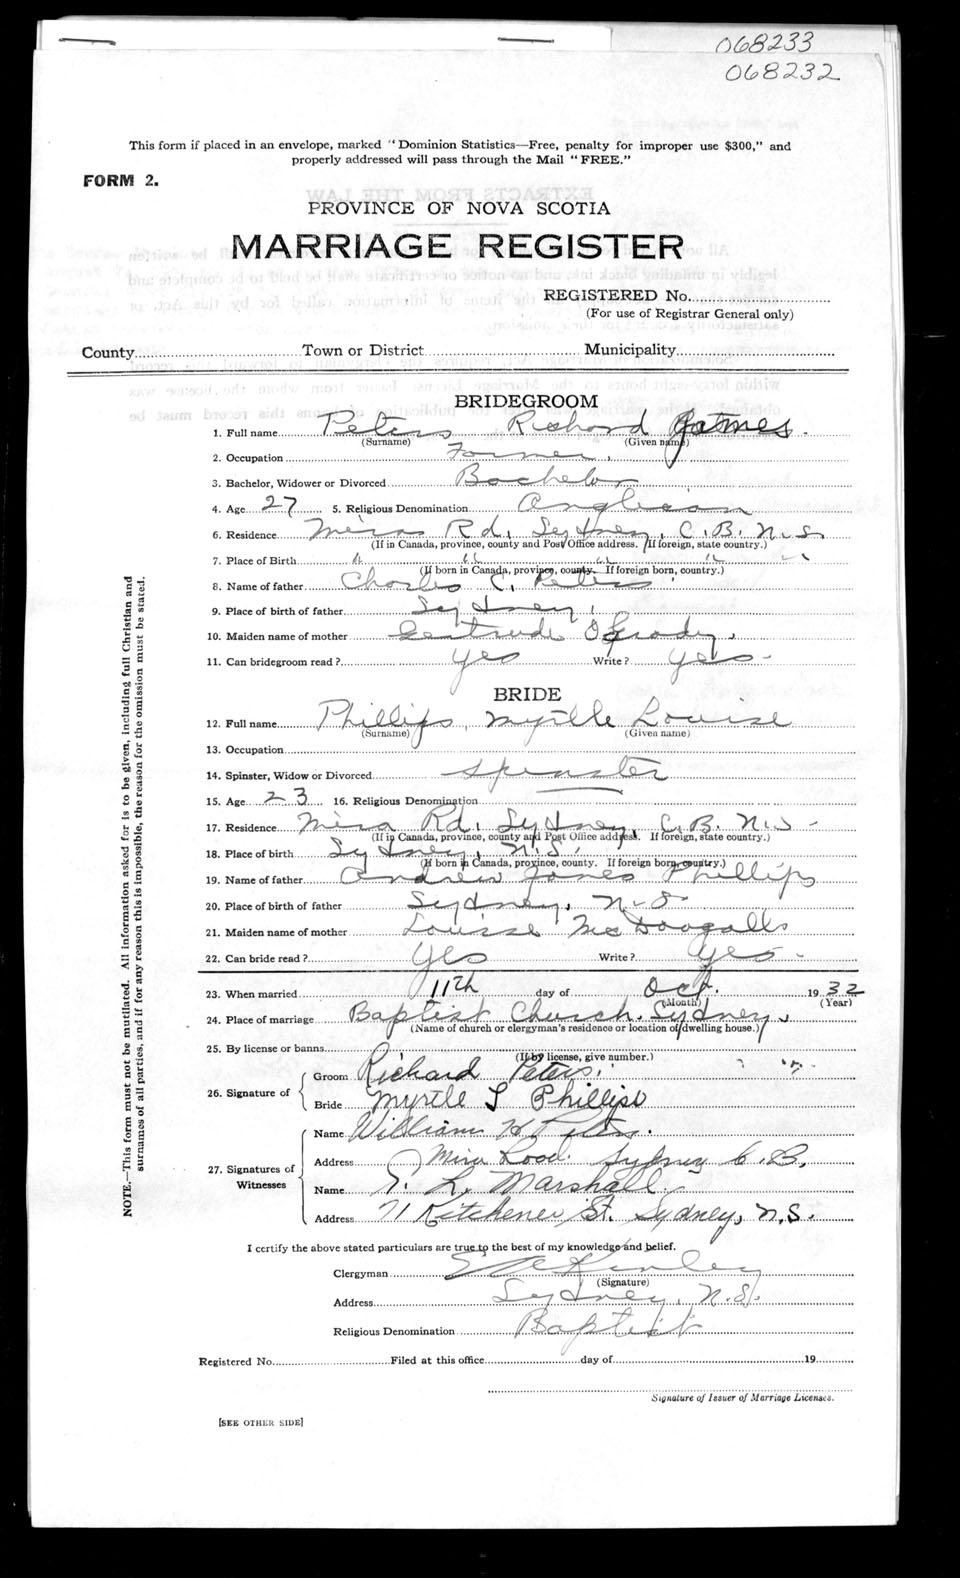 068233
068232
This form if placed in an envelope, marked "Dominion Statistics—Free, penalty for improper use $300," and
properly addressed will pass through the Mail "FREE."
FORM 2.
PROVINCE OF NOVA SCOTIA
MARRIAGE REGISTER
REGISTERED No.
(For use of Registrar General only)
County Town or District Municipality
BRIDEGROOM
1. Full name Peters Richard James
(Surname) (Given name)
2. Occupation Farmer.
3. Bachelor, Widower or Divorced Bachelor
4. Age 27 5. Religious Denomination Anglican
6. Residence Mira Rd, Sydney, C.B. N.S.
(If in Canada, province, county and Post Office address. If foreign, state country.)
7. Place of Birth " " " " "
(If born in Canada, province, county. If foreign born, country.)
8. Name of father Charles C. Peters
9. Place of birth of father Sydney.
10. Maiden name of mother Gertrude O'Grady.
11. Can bridegroom read? yes Write? yes-
BRIDE
12. Full name Phillips, Myrtle Louise
(Surname) (Given name)
13. Occupation
14. Spinster, Widow or Divorced Spinster
15. Age 23 16. Religious Denomination
17. Residence Mira Rd. Sydney, C.B. N.S-
(If in Canada, province, county and Post Office address. If foreign, state country.)
18. Place of birth Sydney, N.S.
(If born in Canada, province, county. If foreign born, country.)
19. Name of father Andrew Jones Phillips
20. Place of birth of father Sydney, N-S-
21. Maiden name of mother Louise McDougalls
22. Can bride read? Yes Write? Yes-
23. When married 11th day of Oct. 1932
(Month) (Year)
24. Place of marriage Baptist Church. Sydney.
(Name of church or clergyman's residence or location of dwelling house.)
25. By license or banns
(If by license, give number.)
26. Signature of Groom Richard Peters.
Bride Myrtle L Phillips
27. Signatures of Witnesses Name William H Peters.
Address Mira Road. Sydney C.B.
Name L. Marshall.
Address 71 Kitchener St. Sydney, N.S.
I certify the above stated particulars are true to the best of my knowledge and belief.
Clergyman
(Signature)
Address Sydney, N.S.
Religious Denomination Baptist
Registered No. Filed at this office day of 19
Signature of Issuer of Marriage Licenses.
[SEE OTHER SIDE]
NOTE.—This form must not be mutilated. All information asked for is to be given, including full Christian and
surnames of all parties, and if for any reason this is impossible, the reason for the omission must be stated.